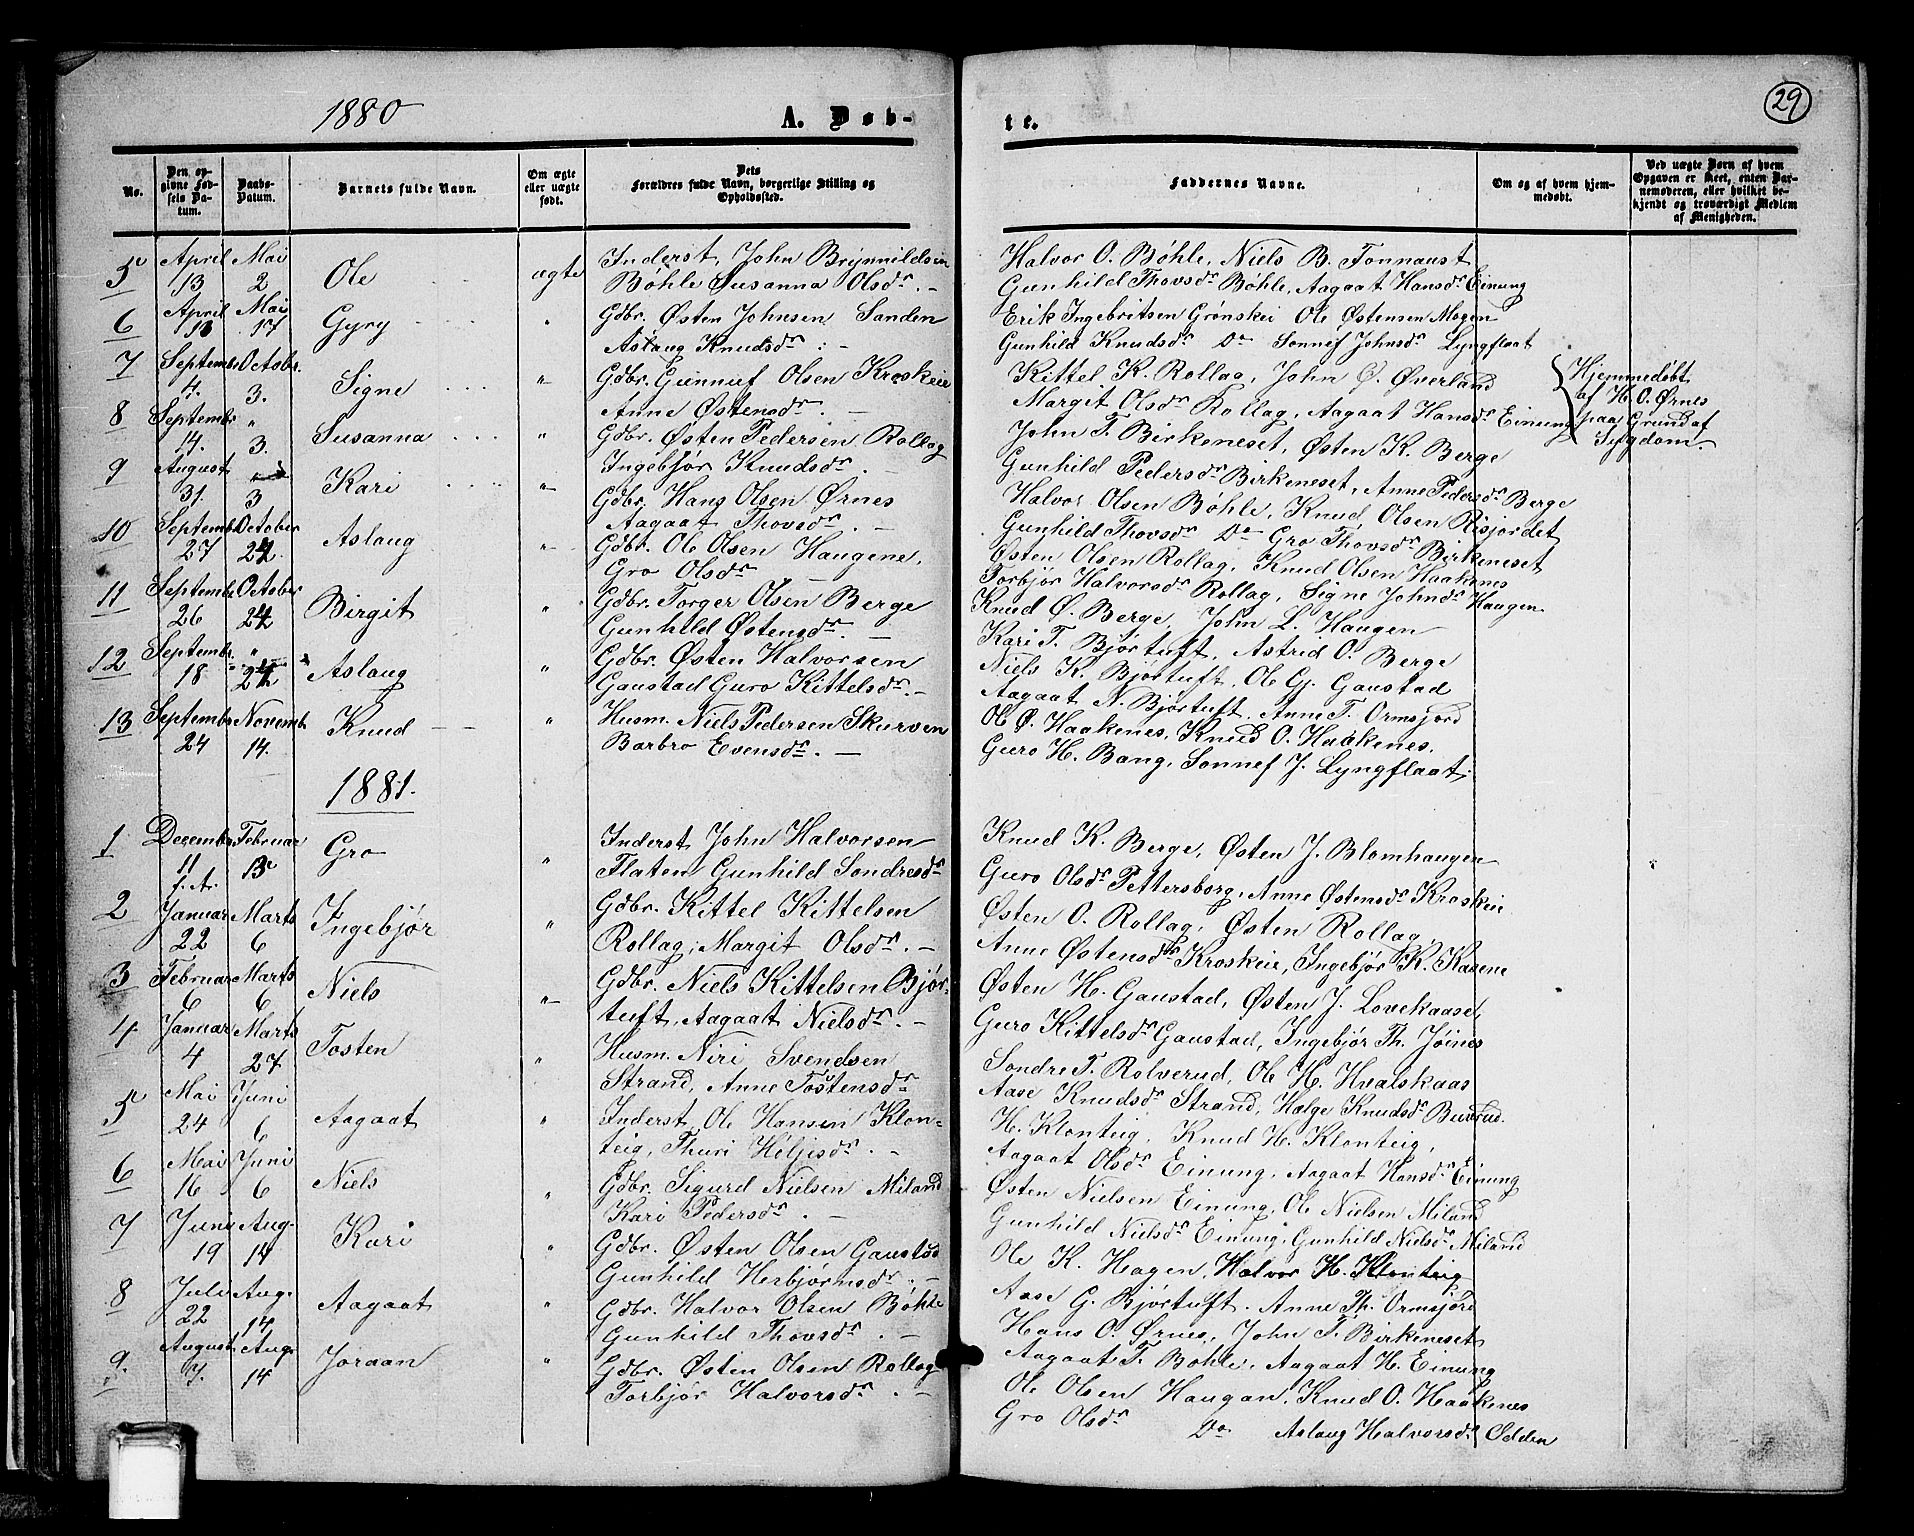 1880
A. Døb-
te.
29
No.
Den opgivne Fødsels Datum.
Daabs-Datum.
Barnets fulde Navn.
Om ægte eller uægte født.
Dets Forældres fulde Navn, borgerlige Stilling og Opholdssted.
Faddernes Navne.
Om og af hvem hjemmedøbt.
Ved uægte Børn af hvem Opgaven er skeet, enten Barnemoderen, eller hvilket bekjendt og troværdigt Medlem af Menigheden.
5 April 13 Mai 2 Ole ægte Inderst, John Brynnildsen
Bøhle Susanna Olsdr. —
Halvor O. Bøhle, Niels B. Tonnaust
Gunhild Thovsdr Bøhle, Aagaat Hansdr Einung
6 April 13 Mai 17 Gyry " Gdbr. Østen Johnsen Sanden
Aslaug Knudsdr : —
Erik Ingebritsen Grønskei Ole Østensen Mogen
Gunhild Knudsdr Do Sonnef Johnsdr Lyngflaat
7 Septembr 4. Octobr. 3. Signe " Gdbr. Gunnuf Olsen Kroskeie
Anne Østensdr. —
Kittel K. Rollag, John Ø. Øverland
Margit Olsdr Rollag, Aagaat Hansdr Einung
Hjemmedøbt
af H. O. Ørnes
paa Grund af
Sygdom.
8 Septembr 14. " 3. Susanna " Gdbr. Østen Pedersen Rollag
Ingebjør Knudsdr. —
John T. Birkeneset, Østen K. Berge
Gunhild Pedersdr Birkeneset, Anne Pedersdr Berge
9 August 31. " 3 Kari " Gdbr. Hans Olsen Ørnes
Aagaat Thovsdr. —
Halvor Olsen Bøhle, Knud Olsen Risjordet
Gunhild Thovsdr Do Gro Thovsdr Birkeneset
10 Septembr 27 October 24. Aslaug " Gdbr. Ole Olsen Haugene,
Gro Olsdr —
Østen Olsen Rollag, Knud Olsen Haakenes
Torbjør Halvorsdr Rollag, Signe Johndr Haugen
11 Septembr 26 October 24 Birgit " Gdbr. Torger Olsen Berge
Gunhild Østensdr. —
Knud Ø. Berge, John L. Haugen
Kari T. Bjørtuft, Astred O. Berge
12 Septembr. 18 " 24 Aslaug " Gdbr. Østen Halvorsen
Gaustad Guro Kittelsdr. —
Niels K. Bjørtuft, Ole G. Gaustad
Aagaat N. Bjørtuft, Anne T. Ormsjord
13 Septembr 24 Novembr 14. Knud " Husm. Niels Pedersen Skurven
Barbro Evensdr. —
Ole Ø. Haakenes, Knud O. Haakenes.
Guro H. Bang, Sonnef J. Lyngflaat.
1881.
1 Decembr 11 f. A. Februar 13 Gro " Inderst John Halvorsen
Flaten Gunhild Sondresdr
Knud K. Berge, Østen J. Blomhaugen
Guro Olsdr Pettersborg, Anne Østensdr Kroskeie
2 Januar 22 Marts 6 Ingebjør " Gdbr. Kittel Kittelsen
Rollag, Margit Olsdr. —
Østen O. Rollag, Østen Rollag,
Anne Østensdr Kroskeie, Ingebjør K. Kasene
3 Februar 6 Marts 6 Niels " Gdbr. Niels Kittelsen Bjør-
tuft, Aagaat Nielsdr. —
Østen H. Gaustad, Østen J. Lovekaase,
Guro Kittelsdr Gaustad, Ingebjør Th. Jøines
4 Januar 4 Marts 27 Tosten " Husm. Niri Svendsen
Strand, Anne Tostensdr
Sondre T. Rolverud, Ole H. Hvalskaas
Aase Knudsdr Strand, Hælge Knudsdr
5 Mai 24 Juni 6 Aagaat " Inderst, Ole Hansen Klon-
teig, Thuri Høljisdr. —
H. Klonteig, Knud H. Klonteig,
Aagaat Olsdr Einung, Aagaat Hansdr Einung
6 Mai 16 Juni 6 Niels " Gdbr. Sigurd Nielsen Miland
Kari Pedersdr. —
Østen Nielsen Einung, Ole Nielsen Miland
Gunhild Nielsdr Einung, Gunhild Nielsdr Miland
7 Juni 19 Aug. 14 Kari " Gdbr. Østen Olsen Gaustad
Gunhild Herbjørnsdr. —
Ole K. Hagen, Halvor H. Klonteig
Aase G. Bjørtuft. Anne Th. Ormsjord
8 Juli 22 Aug. 14 Aagaat " Gdbr. Halvor Olsen Bøhle
Gunhild Thovsdr. —
Hans O. Ørnes, John T. Birkeneset
Aagaat T. Bøhle, Aagaat H. Einung
9. August 7. Aug. 14 Joraan " Gdbr. Østen Olsen Rollag
Torbjør Halvorsdr. —
Ole Olsen Haugan, Knud O. Haakenes
Gro Olsdr Do Aslaug Halvorsdr Odden